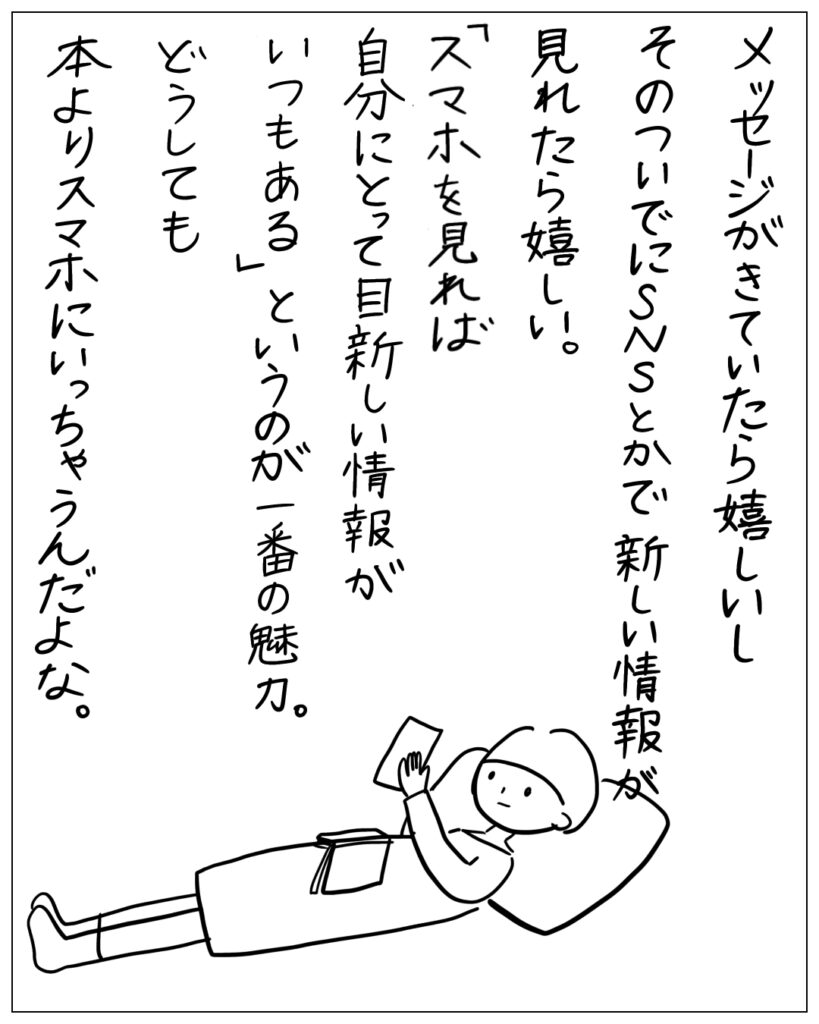 メッセージがきていたら嬉しいし
そのついでにSNSとかで新しい情報が
見れたら嬉しい。
「スマホを見れば
自分にとって目新しい情報が
いつもある」というのが一番の魅力。
どうしても
本よりスマホにいっちゃうんだよな。